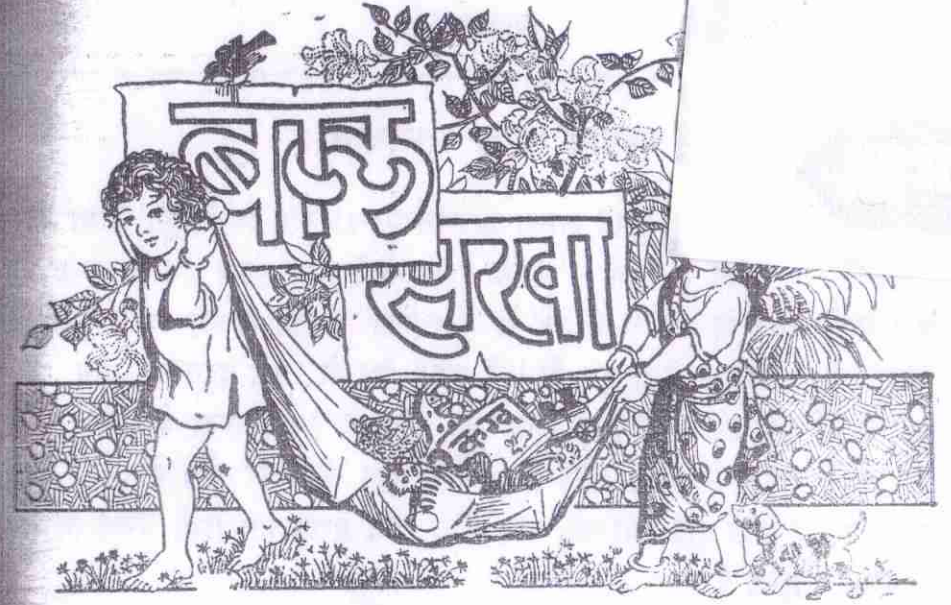 बाल
सखा